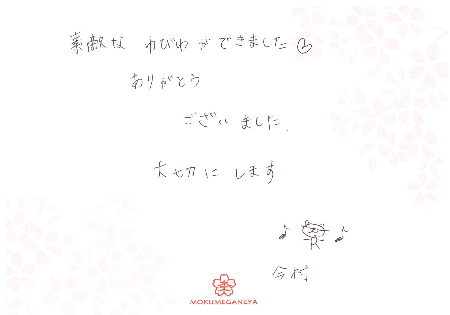 素敵な ゆびわ ができました
ありがとう
ございました.
大切に します
R
今村
MOKUMEGANEYA